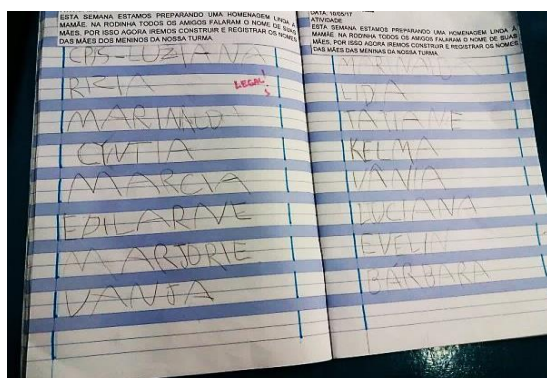 ESTA SEMANA ESTAMOS PREPARANDO UMA HOMENAGEM LINDA À
MAMÃE. NA RODINHA TODOS OS AMIGOS FALARAM O NOME DE SUAS
MÃES, POR ISSO AGORA IREMOS CONSTRUIR E REGISTRAR OS NOMES
DAS MÃES DOS MENINOS DA NOSSA TURMA.
CAS-LUZIANA
RIZIA
LEGAL
MARINALD
CYNTIA
MARCIA
EDILARNE
MARJORIE
VANJA
DATA: 16/05/17
ATIVIDADE
ESTA SEMANA ESTAMOS PREPARANDO UMA HOMENAGEM LINDA À
MAMÃE. NA RODINHA TODOS OS AMIGOS FALARAM O NOME DE SUAS
MÃES, POR ISSO AGORA IREMOS CONSTRUIR E REGISTRAR OS NOMES
DAS MÃES DAS MENINAS DA NOSSA TURMA.
LIDA
TATIANE
KELMA
VANIA
LUCIANA
EVELIN
BÁRBARA